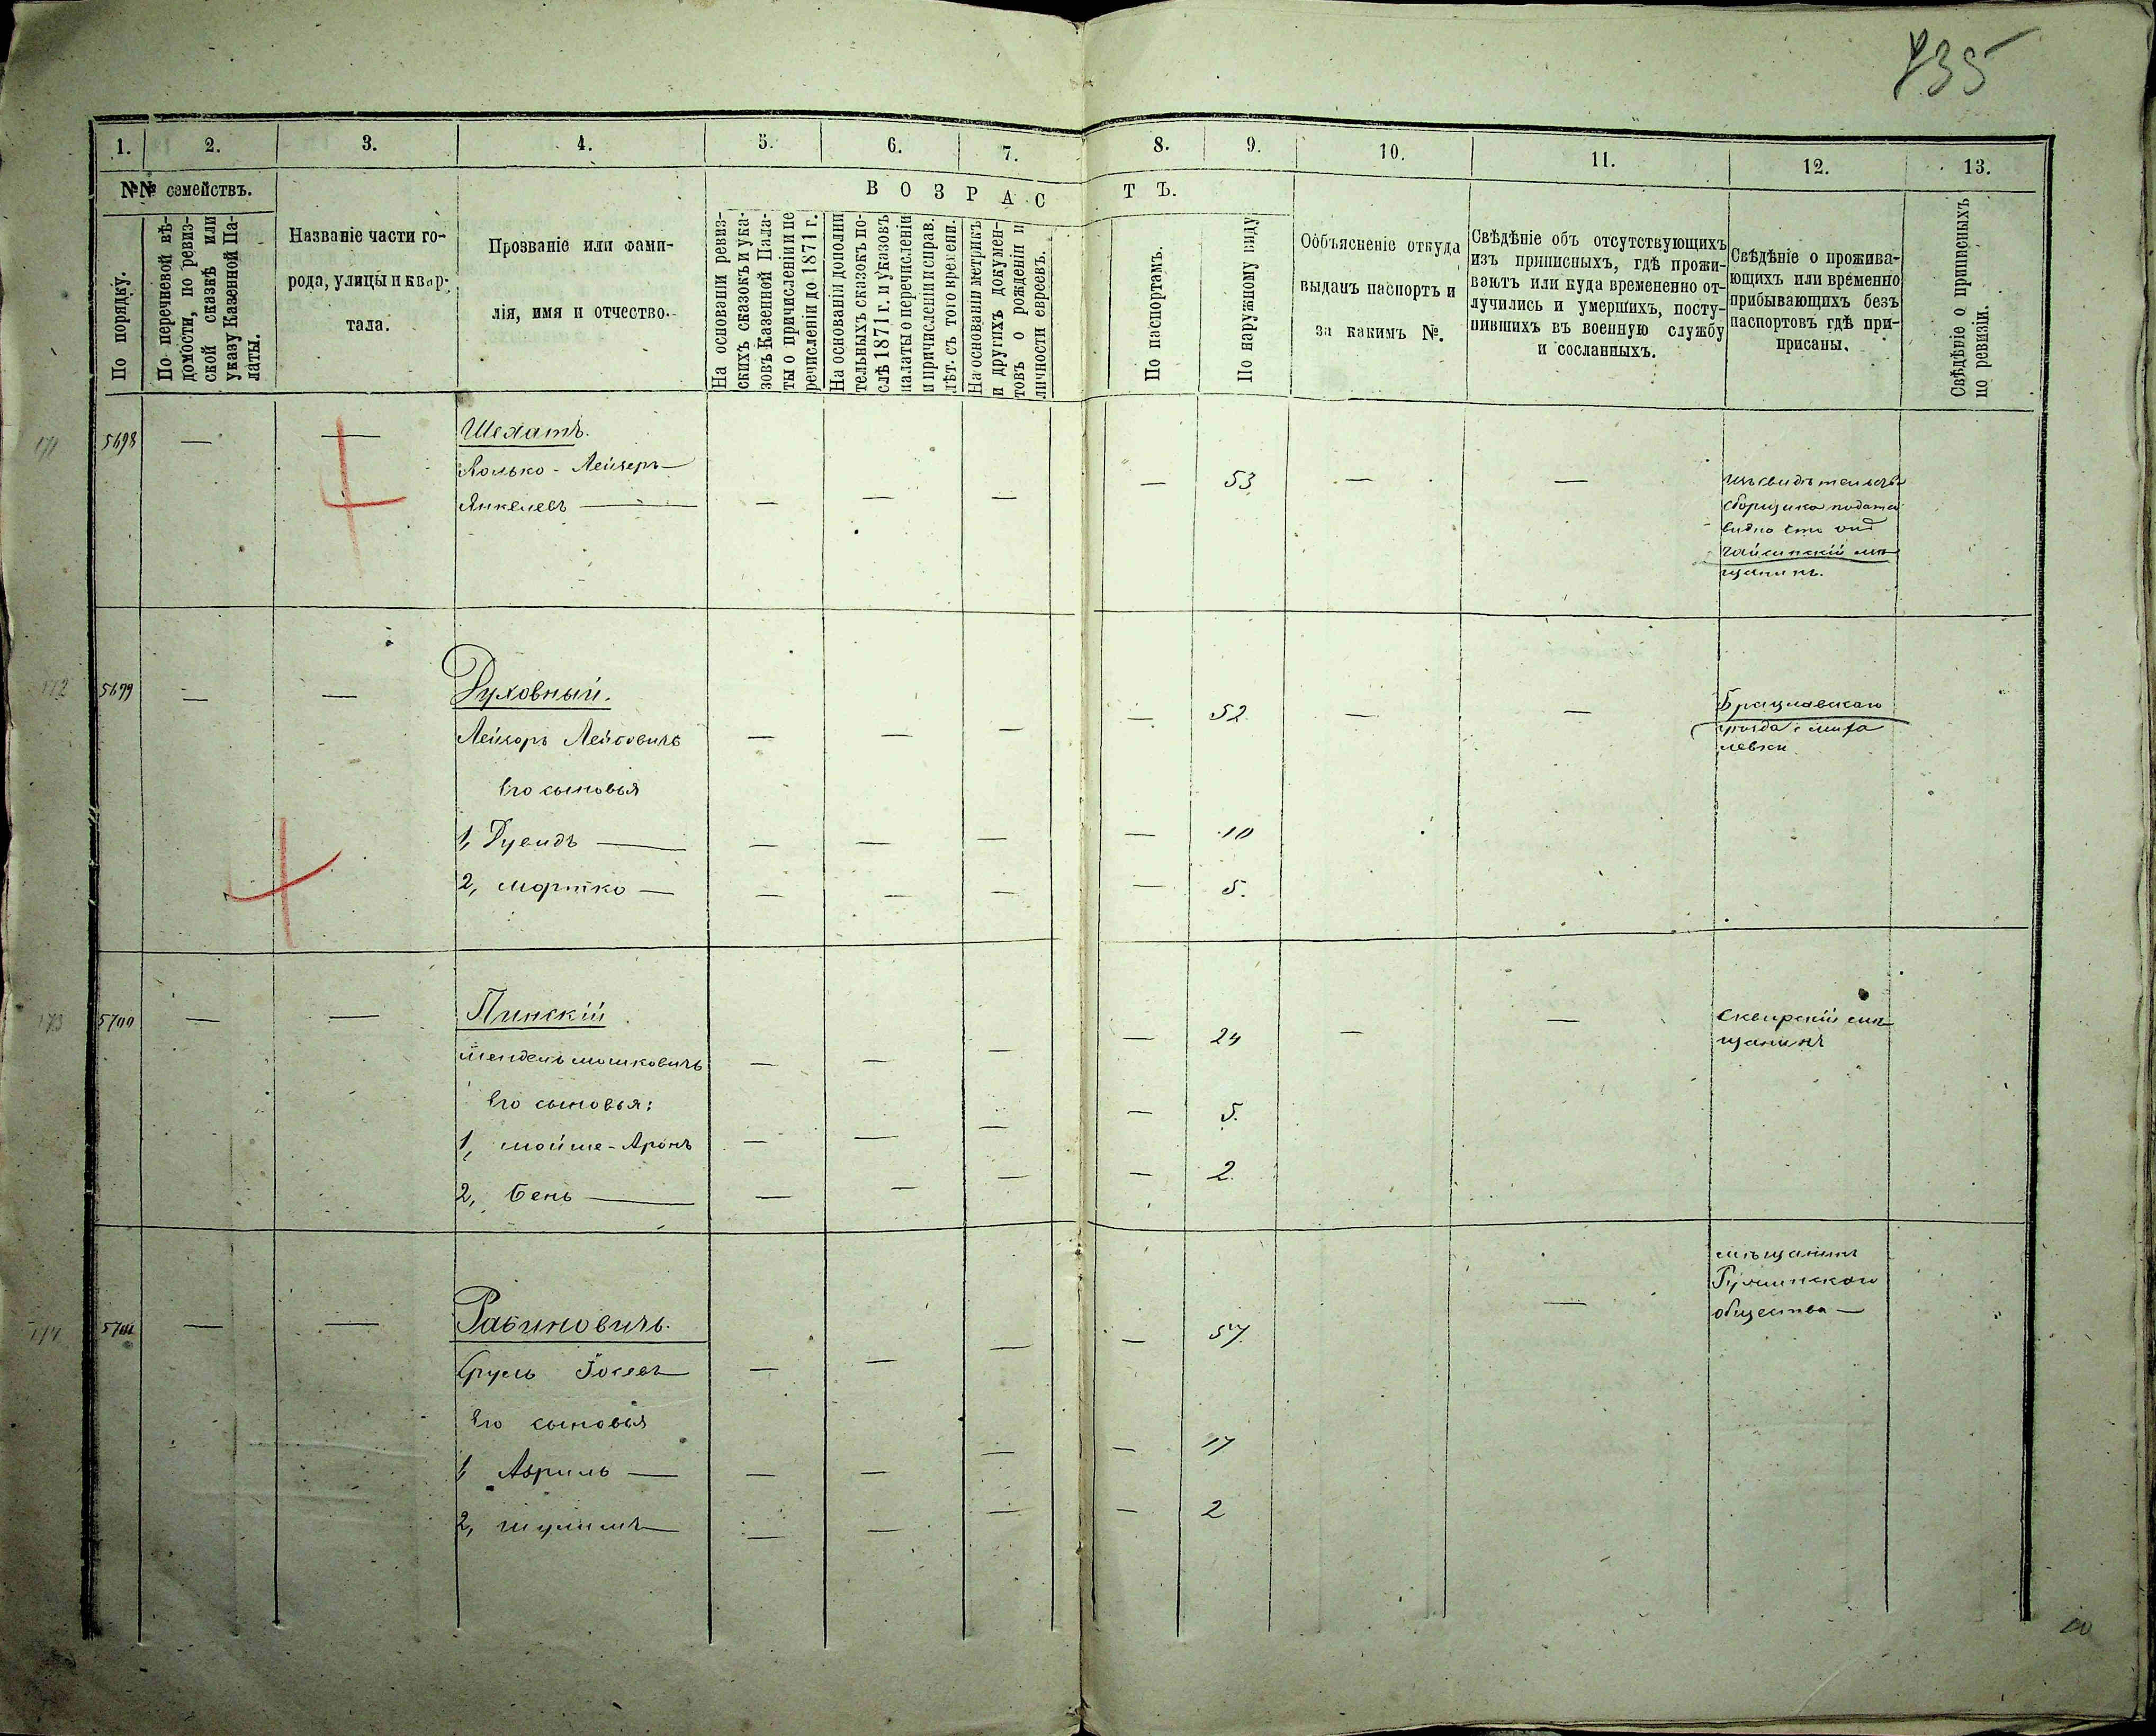 735
1. 2. 3. 4. 5. 6. 7. 8. 9. 10. 11. 12. 13.
№№ семействъ.
По порядку.
По перечневой вѣ-
домости, по ревиз-
ской сказкѣ или
указу Казенной Па-
латы.
Названіе части го-
рода, улицы и квар-
тала.
Прозваніе или фами-
лія, имя и отчество.
ВОЗРАСТЪ.
На основаніи ревиз-
скихъ сказокъ и ука-
зовъ Казенной Пала-
ты о причисленіи и пе
речисленіи до 1871 г.
На основаніи дополни
тельныхъ сказокъ по-
слѣ 1871 г. и указовъ
палаты о перечисленіи
и причисленіи и справ.
лѣт. съ того времени.
На основаніи метрикъ
и другихъ докумен-
товъ о рожденіи и
личности евреевъ.
По паспортамъ.
По наружному виду
Объясненіе откуда
выданъ паспортъ и
за какимъ №.
Свѣдѣніе объ отсутствующихъ
изъ приписныхъ, гдѣ прожи-
ваютъ или куда временно от-
лучились и умершихъ, посту-
пившихъ въ военную службу
и сосланныхъ.
Свѣдѣніе о прожива-
ющихъ или временно
прибывающихъ безъ
паспортовъ гдѣ при-
присаны.
Свѣдѣніе о приписныхъ
по ревизіи.
171 5698 — — Шехатъ.
Волько - Лейзеръ —
Янкелевъ — — — — — 53 — —
сборщика податей
видно что онъ
Гайсинскій мѣ
щанинъ.
172 5699 — — Духовный.
Лейзоръ Лейбовичъ — — — — 52 — —
Брацлавскаго
уѣзда
Его сыновья
1, Дувидъ — — — — — 10
2, Мортко — — — — — 5.
173 5700 — — Пинскій
Мендель Мошковичъ — — — — 24 — —
Сквирскій мѣ
щанинъ
Его сыновья:
1, Мойше-Аронъ — — — — 5.
2, Бень — — — — — 2.
174 5701 — — Рабиновичъ.
Сруль Іосевъ — — — — 57. —
мѣщанинъ
общества —
Его сыновья
1, Авриль — — — — — 17
2, Шулимъ — — — — — 2